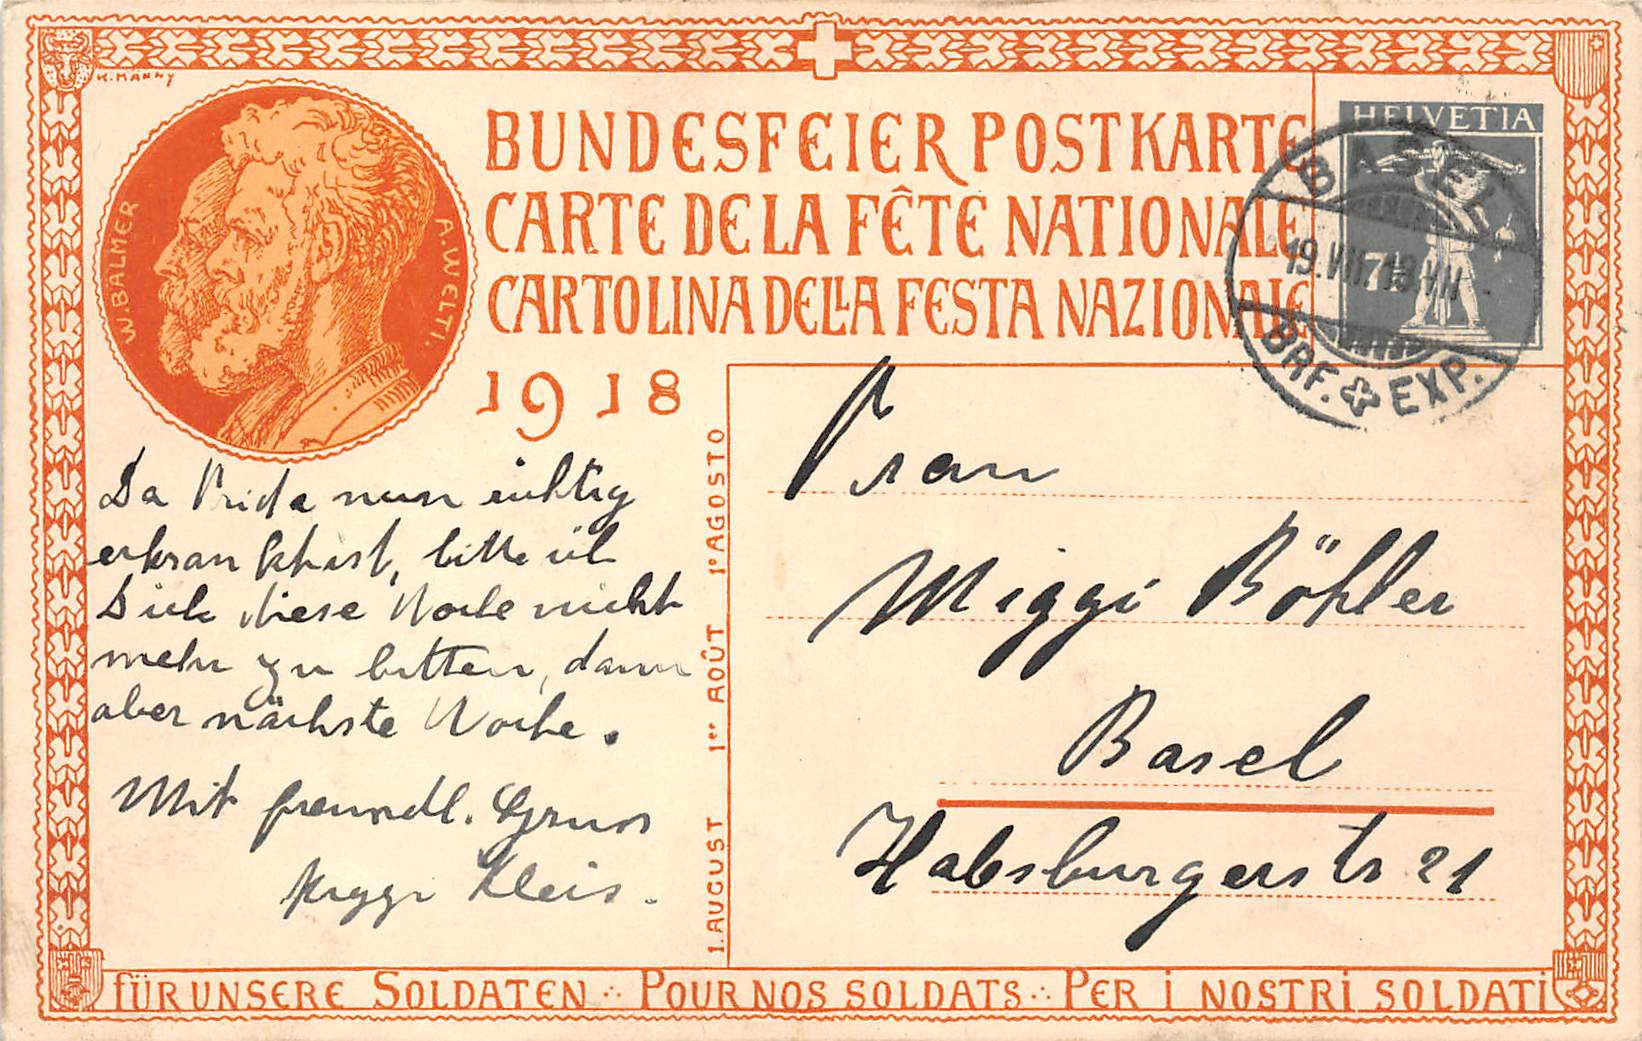 K. MÄNNY
W. BALMER
A. WELTI.
BUNDESFEIER POSTKARTE
CARTE DE LA FÊTE NATIONALE
CARTOLINA DELLA FESTA NAZIONALE
1918
HELVETIA
7½
BASEL
19.VIII.18.VII
BRF. EXP.
Da Frida nun richtig
erkrankt ist, bitte ich
Dich diese Woche nicht
mehr zu bitten, dann
aber nächste Woche.
Mit freundl. Gruss
Kleis.
1. AUGUST 1er AOÛT 1° AGOSTO
Frau
Miggi Böhler
Basel
Habsburgerstr 21
FÜR UNSERE SOLDATEN ∴ POUR NOS SOLDATS ∴ PER I NOSTRI SOLDATI